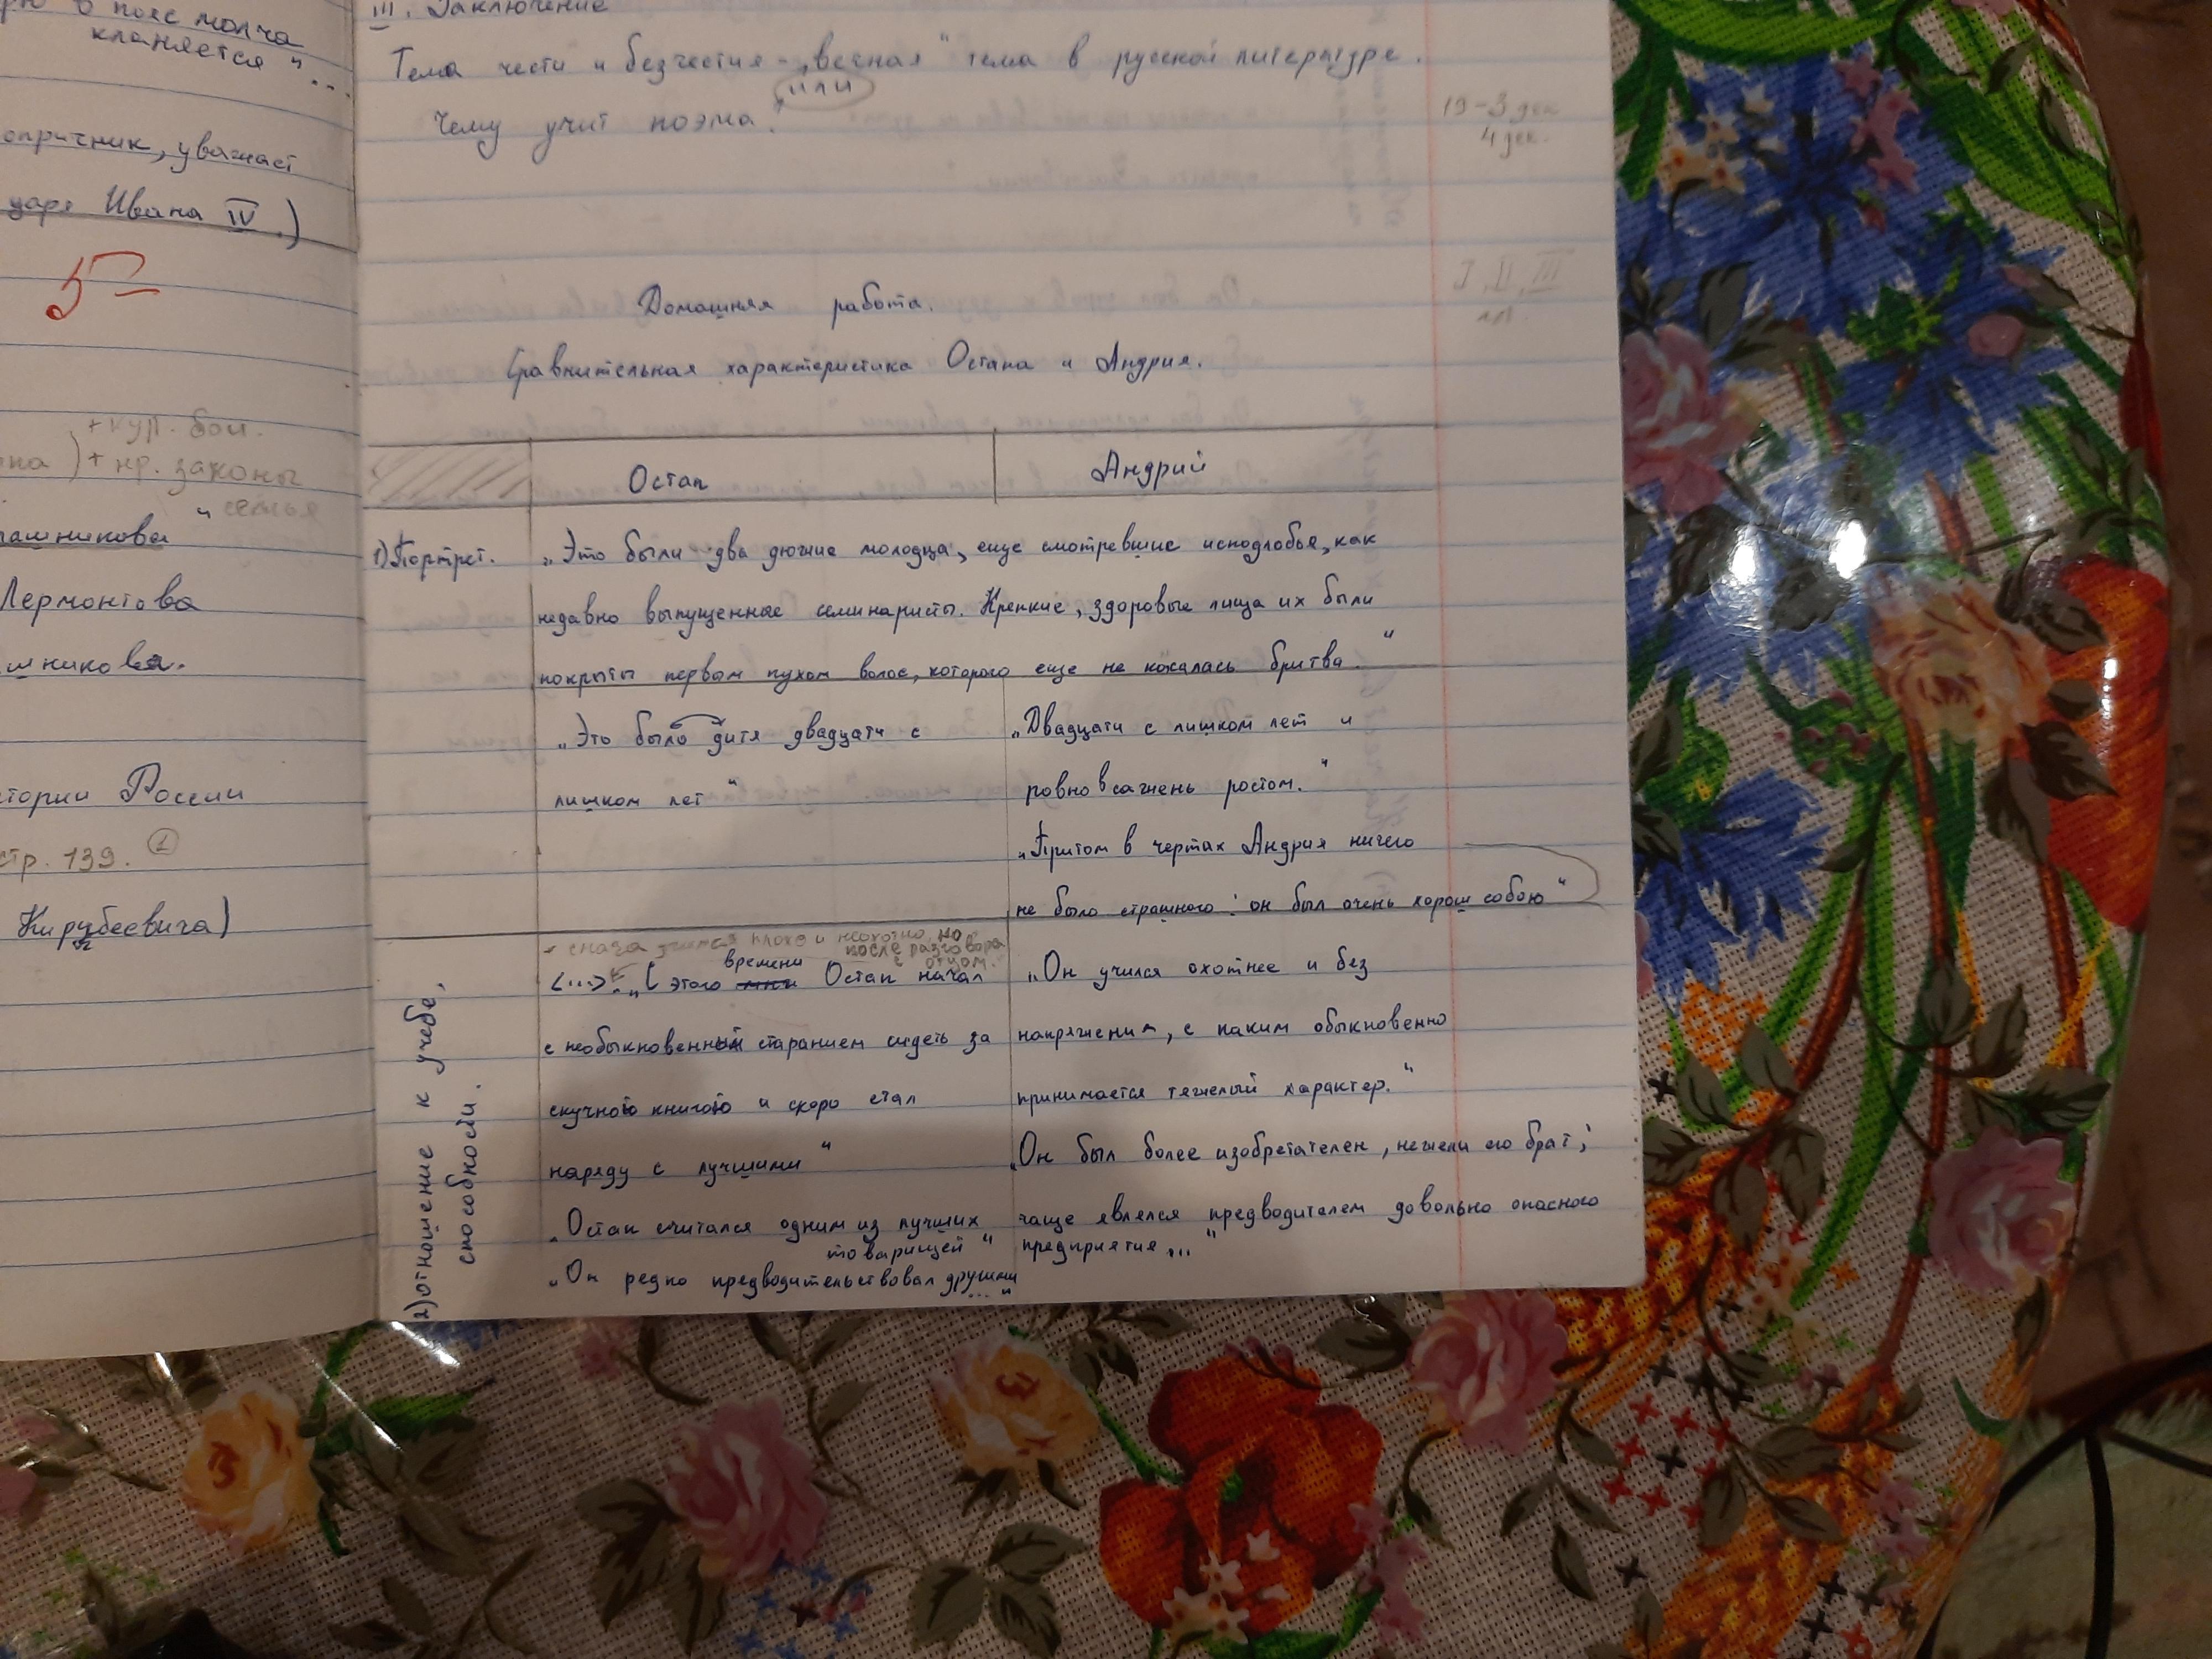 в пояс молча
кланяется"...
опричник, уважает
царя Ивана IV.)
5-
+ кул. бои.
) + нр. законы
семья
ашникова"
Лермонтова
шникова.
стории России
стр. 139. 1
Кирибеевича)
III. Заключение
Тема чести и безчестия - „вечная" тема в русской литературе.
или
Чему учит поэма?
19-3 дек
4 дек.
I, II, III
Домашняя работа.
Сравнительная характеристика Остапа и Андрия.
Остап Андрий
1) Портрет. „Это были два дюжие молодца, еще смотревшие исподлобья, как
недавно выпущенные семинаристы. Крепкие, здоровые лица их были
покрыты первым пухом волос, которого еще не касалась бритва."
„Это было дитя двадцати с
лишком лет"
„Двадцати с лишком лет и
ровно в сажень ростом."
„Притом в чертах Андрия ничего
не было страшного: он был очень хорош собою"
2) отношение к учебе,
способности.
учится плохо и неохотно, но
после разговора
с отцом.
<...>. „С этого времени Остап начал
с необыкновенным старанием сидеть за
скучною книгою и скоро стал
наряду с лучшими"
„Остап считался одним из лучших
товарищей"
„Он редко предводительствовал другими
..."
„Он учился охотнее и без
напряжения, с каким обыкновенно
принимается тяжелый характер."
„Он был более изобретателен, нежели его брат;
чаще являлся предводителем довольно опасного
предприятия..."